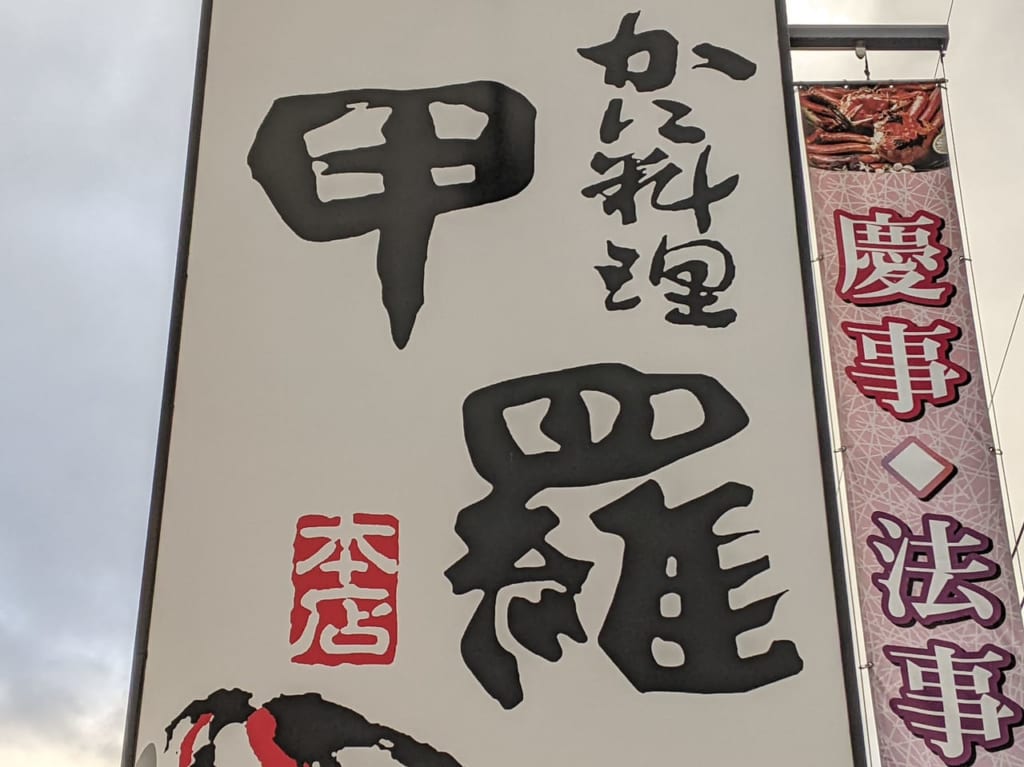 かに料理
甲羅
本店
慶事◇法事